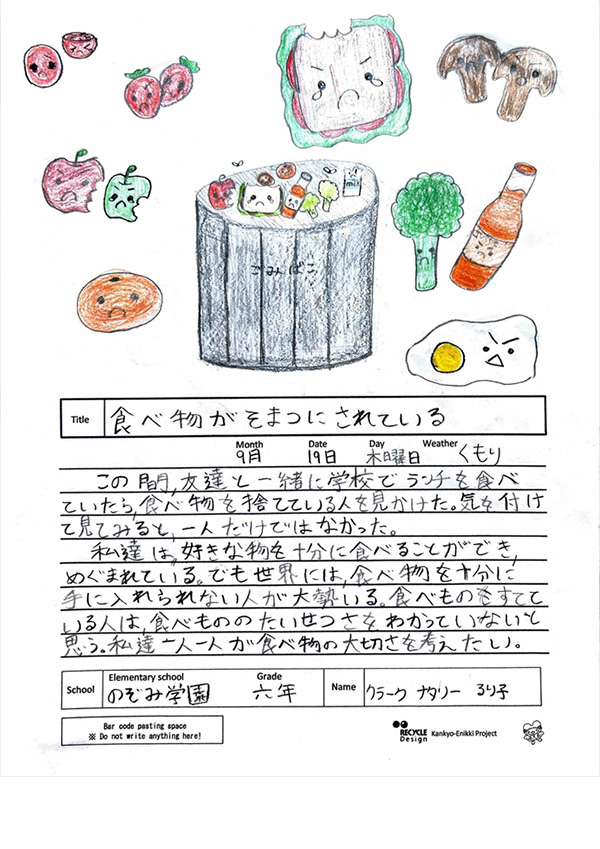 milk
ごみばこ
Title 食べ物がそまつにされている
Month Date Day Weather
9月 19日 木曜日 くもり
この間,友達と一緒に学校でランチを食べ
ていたら,食べ物を捨てている人を見かけた。気を付け
て見てみると,一人だけではなかった。
私達は,好きな物を十分に食べることができ,
めぐまれている。でも世界には,食べ物を十分に
手に入れられない人が大勢いる。食べものをすてて
いる人は,食べもののたいせつさをわかっていないと
思う。私達一人一人が食べ物の大切さを考えたい。
School Elementary school のぞみ学園 Grade 六年 Name クラーク ナタリー るり子
Bar code pasting space
※ Do not write anything here!
RECYCLE Design Kankyo-Enikki Project